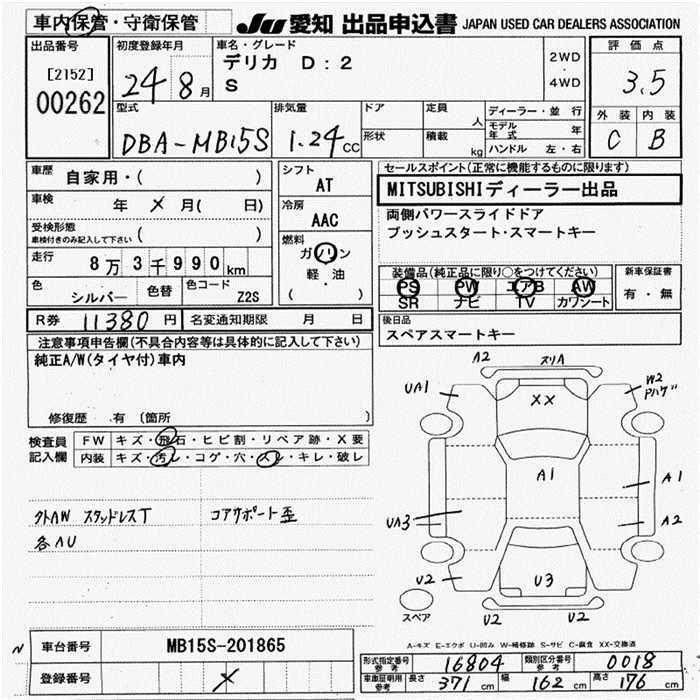 車内保管・守衛保管
JU 愛知 出品申込書 JAPAN USED CAR DEALERS ASSOCIATION
出品番号
[2152]
00262
初度登録年月
24年8月
車名・グレード
デリカ D:2
S
2WD
・
4WD
評価点
3.5
外装 内装
C B
型式
DBA-MB15S
排気量
1.24cc
ドア
形状
定員 人
積載 kg
ディーラー・並行
モデル年式 年
ハンドル 左・右
車歴 自家用・( )
車検 年 × 月( 日)
受検形態
車検付きのみ記入して下さい ( )
走行 8万3千990km
色 シルバー 色替 色コード Z2S
シフト
AT
冷房
AAC
燃料
ガソリン
軽・油
( )
セールスポイント(正常に機能するものに限ります)
MITSUBISHIディーラー出品
両側パワースライドドア
プッシュスタート・スマートキー
装備品(純正品に限り○をつけてください)
PS PW エアB AW
SR ナビ TV カワシート
新車保証書
有・無
R券 11380円 名変通知期限 月 日
後日品
スペアスマートキー
注意事項申告欄(不具合内容等は具体的に記入して下さい)
純正A/W(タイヤ付)車内
修復歴 有 〔箇所 〕
検査員
記入欄
FW キズ・飛石・ヒビ割・リペア跡・X要
内装 キズ・汚レ・コゲ・穴・スレ・キレ・破レ
外AW スタッドレスT コアサポート歪
各AU
A2 スリA
UA1 XX W2
Pハゲ
A1 A1
UA3 A2
U2 U3
U2 U2
スペア
A-キズ E-エクボ U-凹み W-補修跡 S-サビ C-腐食 XX-交換済
N
車台番号 MB15S-201865
登録番号 ×
形式指定番号 参考 16804 類別区分番号 参考 0018
車庫証明用 参考 長さ 371cm 幅 162cm 高さ 176cm